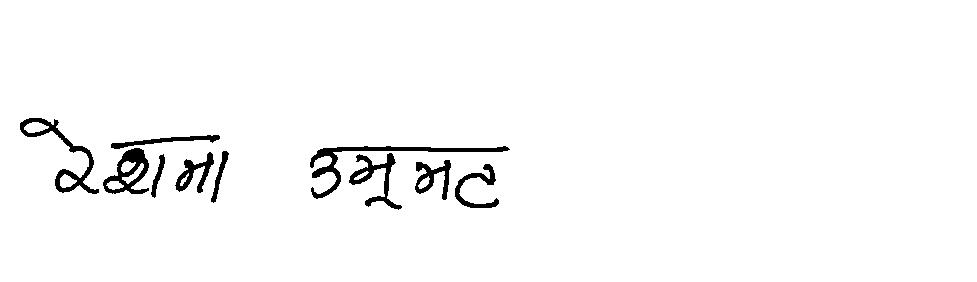 रेशमा उमूमट